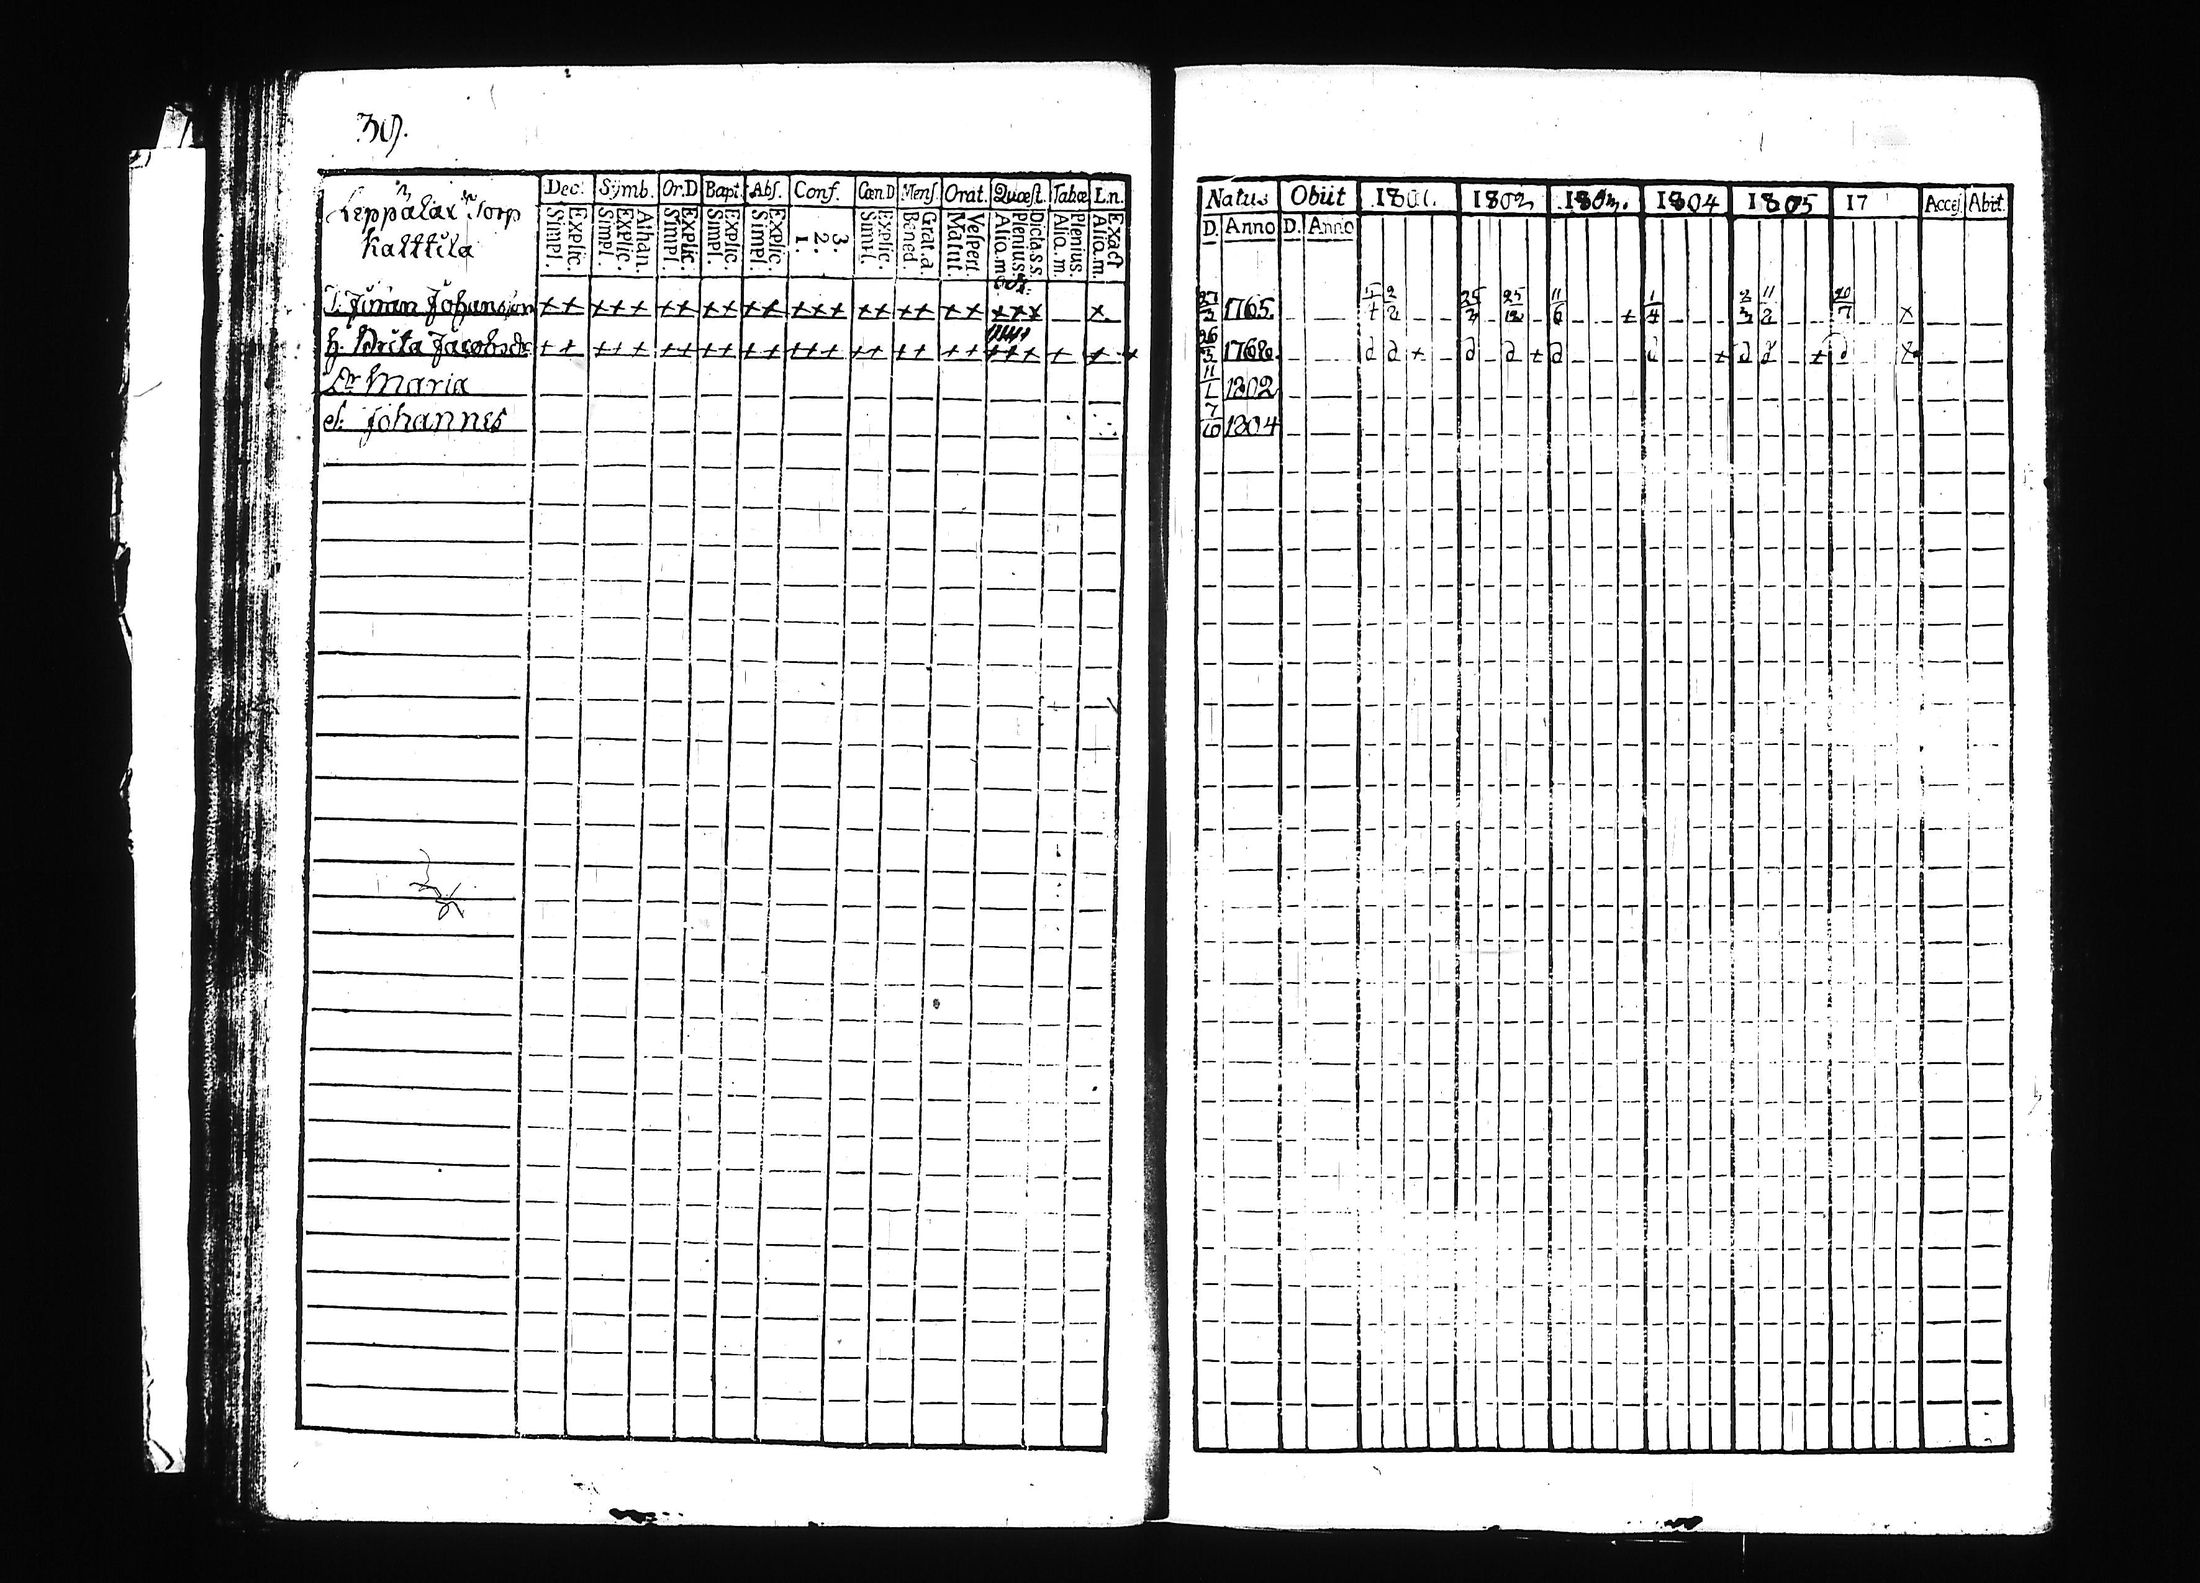 39.
Torp
Dec. Symb. Or.D Bapt. Abs. Conf. Cœn.D Mens. Orat. Quæst. Tabæ Ln.
Simpl. Explic. Simpl. Explic. Athan. Simpl. Explic. Simpl. Explic. Simpl. Explic. 1. 2. 3. Simpl. Explic. Bened. Grat.a. Matut. Vespert. Alio.m. Plenius. Dicta.s.s. Alio.m. Plenius. Alio.m. Exact
Kalttila
Jöran Johansson ++ +++ ++ ++ ++ +++ ++ ++ ++ +++ x
h. Brita Jacobsdr ++ +++ ++ ++ ++ +++ ++ ++ ++ +++ + + +
Dr Maria
S. Johannes
Natus Obiit 1801. 1802 1803. 1804 1805 17 Acces. Abit.
D. Anno D. Anno
27/2 1765 25/3 25/12 11/6 + 1/4 2/3 11/2 20/7 x
26/3 1768 d d + d d + d + d d + d
11/1 1802
7/10 1804